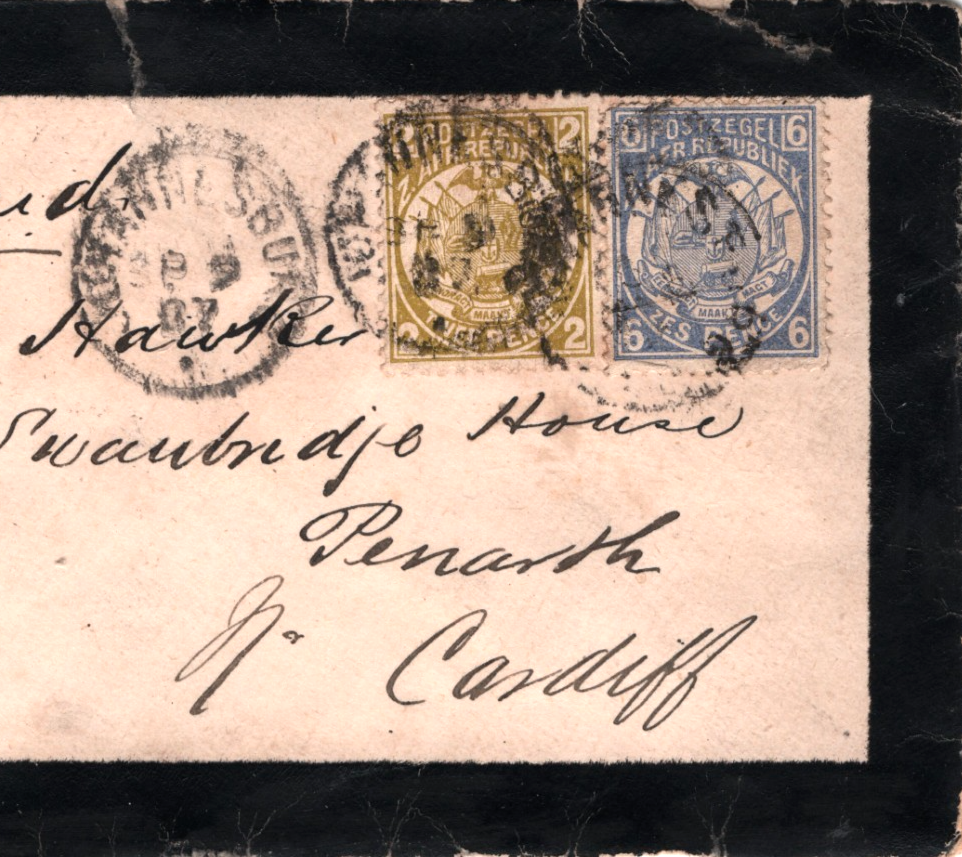 2 POSTZEGEL 2
Z. AFR. REPUBLIEK
EENDRAGT MAAKT MAGT
2 TWEE PENCE 2
6 POSTZEGEL 6
Z. AFR. REPUBLIEK
EENDRAGT MAAKT MAGT
6 ZES PENCE 6
JOHANNESBURG
Hawker
Swanbridge House
Penarth
Nr Cardiff